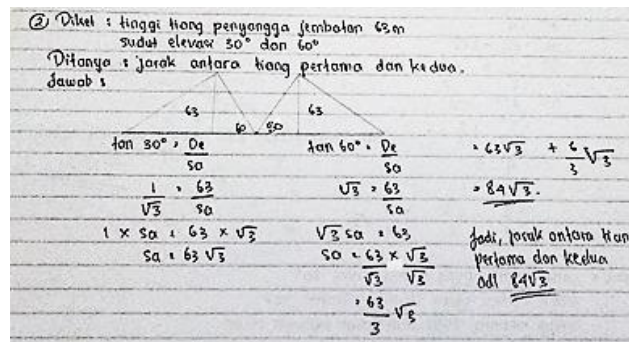 ② Diket : tinggi tiang penyangga jembatan 63m
sudut elevasi 30° dan 60°
Ditanya : jarak antara tiang pertama dan kedua.
Jawab :
63
63
60
30
tan 30° = De
sa
1
√3
= 63
sa
1 × sa = 63 × √3
sa = 63 √3
tan 60° = De
sa
√3 = 63
sa
√3 sa = 63
sa = 63 × √3
√3 √3
= 63 √3
3
= 63√3 + 6 √3
3
= 84√3.
Jadi, jarak antara tian
pertama dan kedua
adl 84√3